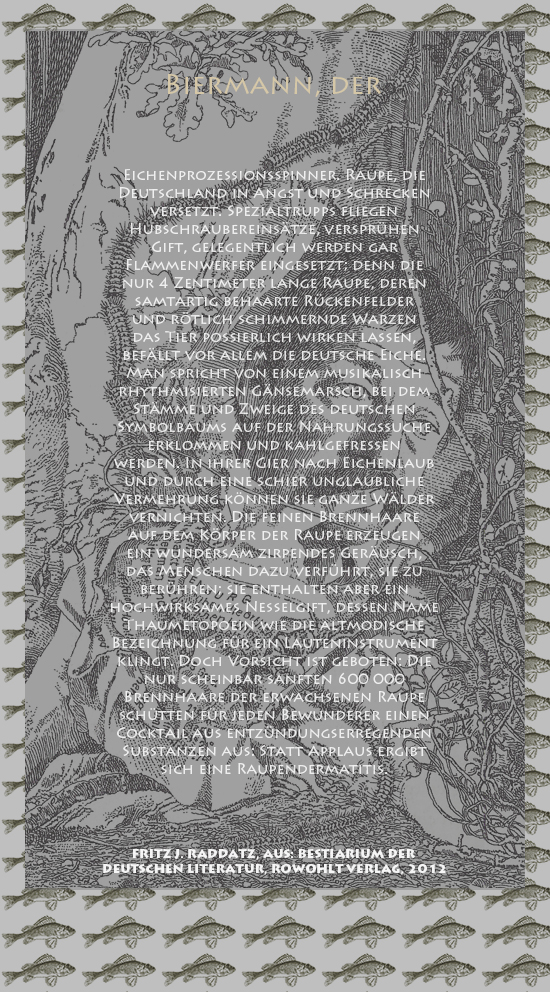 Biermann, der
Eichenprozessionsspinner. Raupe, die
Deutschland in Angst und Schrecken
versetzt. Spezialtrupps fliegen
Hubschraubereinsätze, versprühen
Gift, gelegentlich werden gar
Flammenwerfer eingesetzt; denn die
nur 4 Zentimeter lange Raupe, deren
samtartig behaarte Rückenfelder
und rötlich schimmernde Warzen
das Tier possierlich wirken lassen,
befällt vor allem die deutsche Eiche.
Man spricht von einem musikalisch
rhythmisierten Gänsemarsch, bei dem
Stämme und Zweige des deutschen
Symbolbaums auf der Nahrungssuche
erklommen und kahlgefressen
werden. In ihrer Gier nach Eichenlaub
und durch eine schier unglaubliche
Vermehrung können sie ganze Wälder
vernichten. Die feinen Brennhaare
auf dem Körper der Raupe erzeugen
ein wundersam zirpendes Geräusch,
das Menschen dazu verführt, sie zu
berühren; sie enthalten aber ein
hochwirksames Nesselgift, dessen Name
Thaumetopoein wie die altmodische
Bezeichnung für ein Lauteninstrument
klingt. Doch Vorsicht ist geboten: Die
nur scheinbar sanften 600 000
Brennhaare der erwachsenen Raupe
schütten für jeden Bewunderer einen
Cocktail aus entzündungserregenden
Substanzen aus: Statt Applaus ergibt
sich eine Raupendermatitis.
Fritz J. Raddatz, aus: Bestiarium der
deutschen Literatur, Rowohlt Verlag, 2012